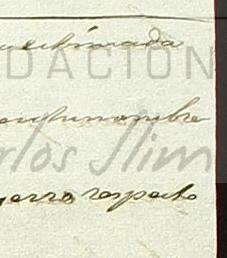 estimada
DACIÓN
en su nombre
rlos Slim
yerro respecto